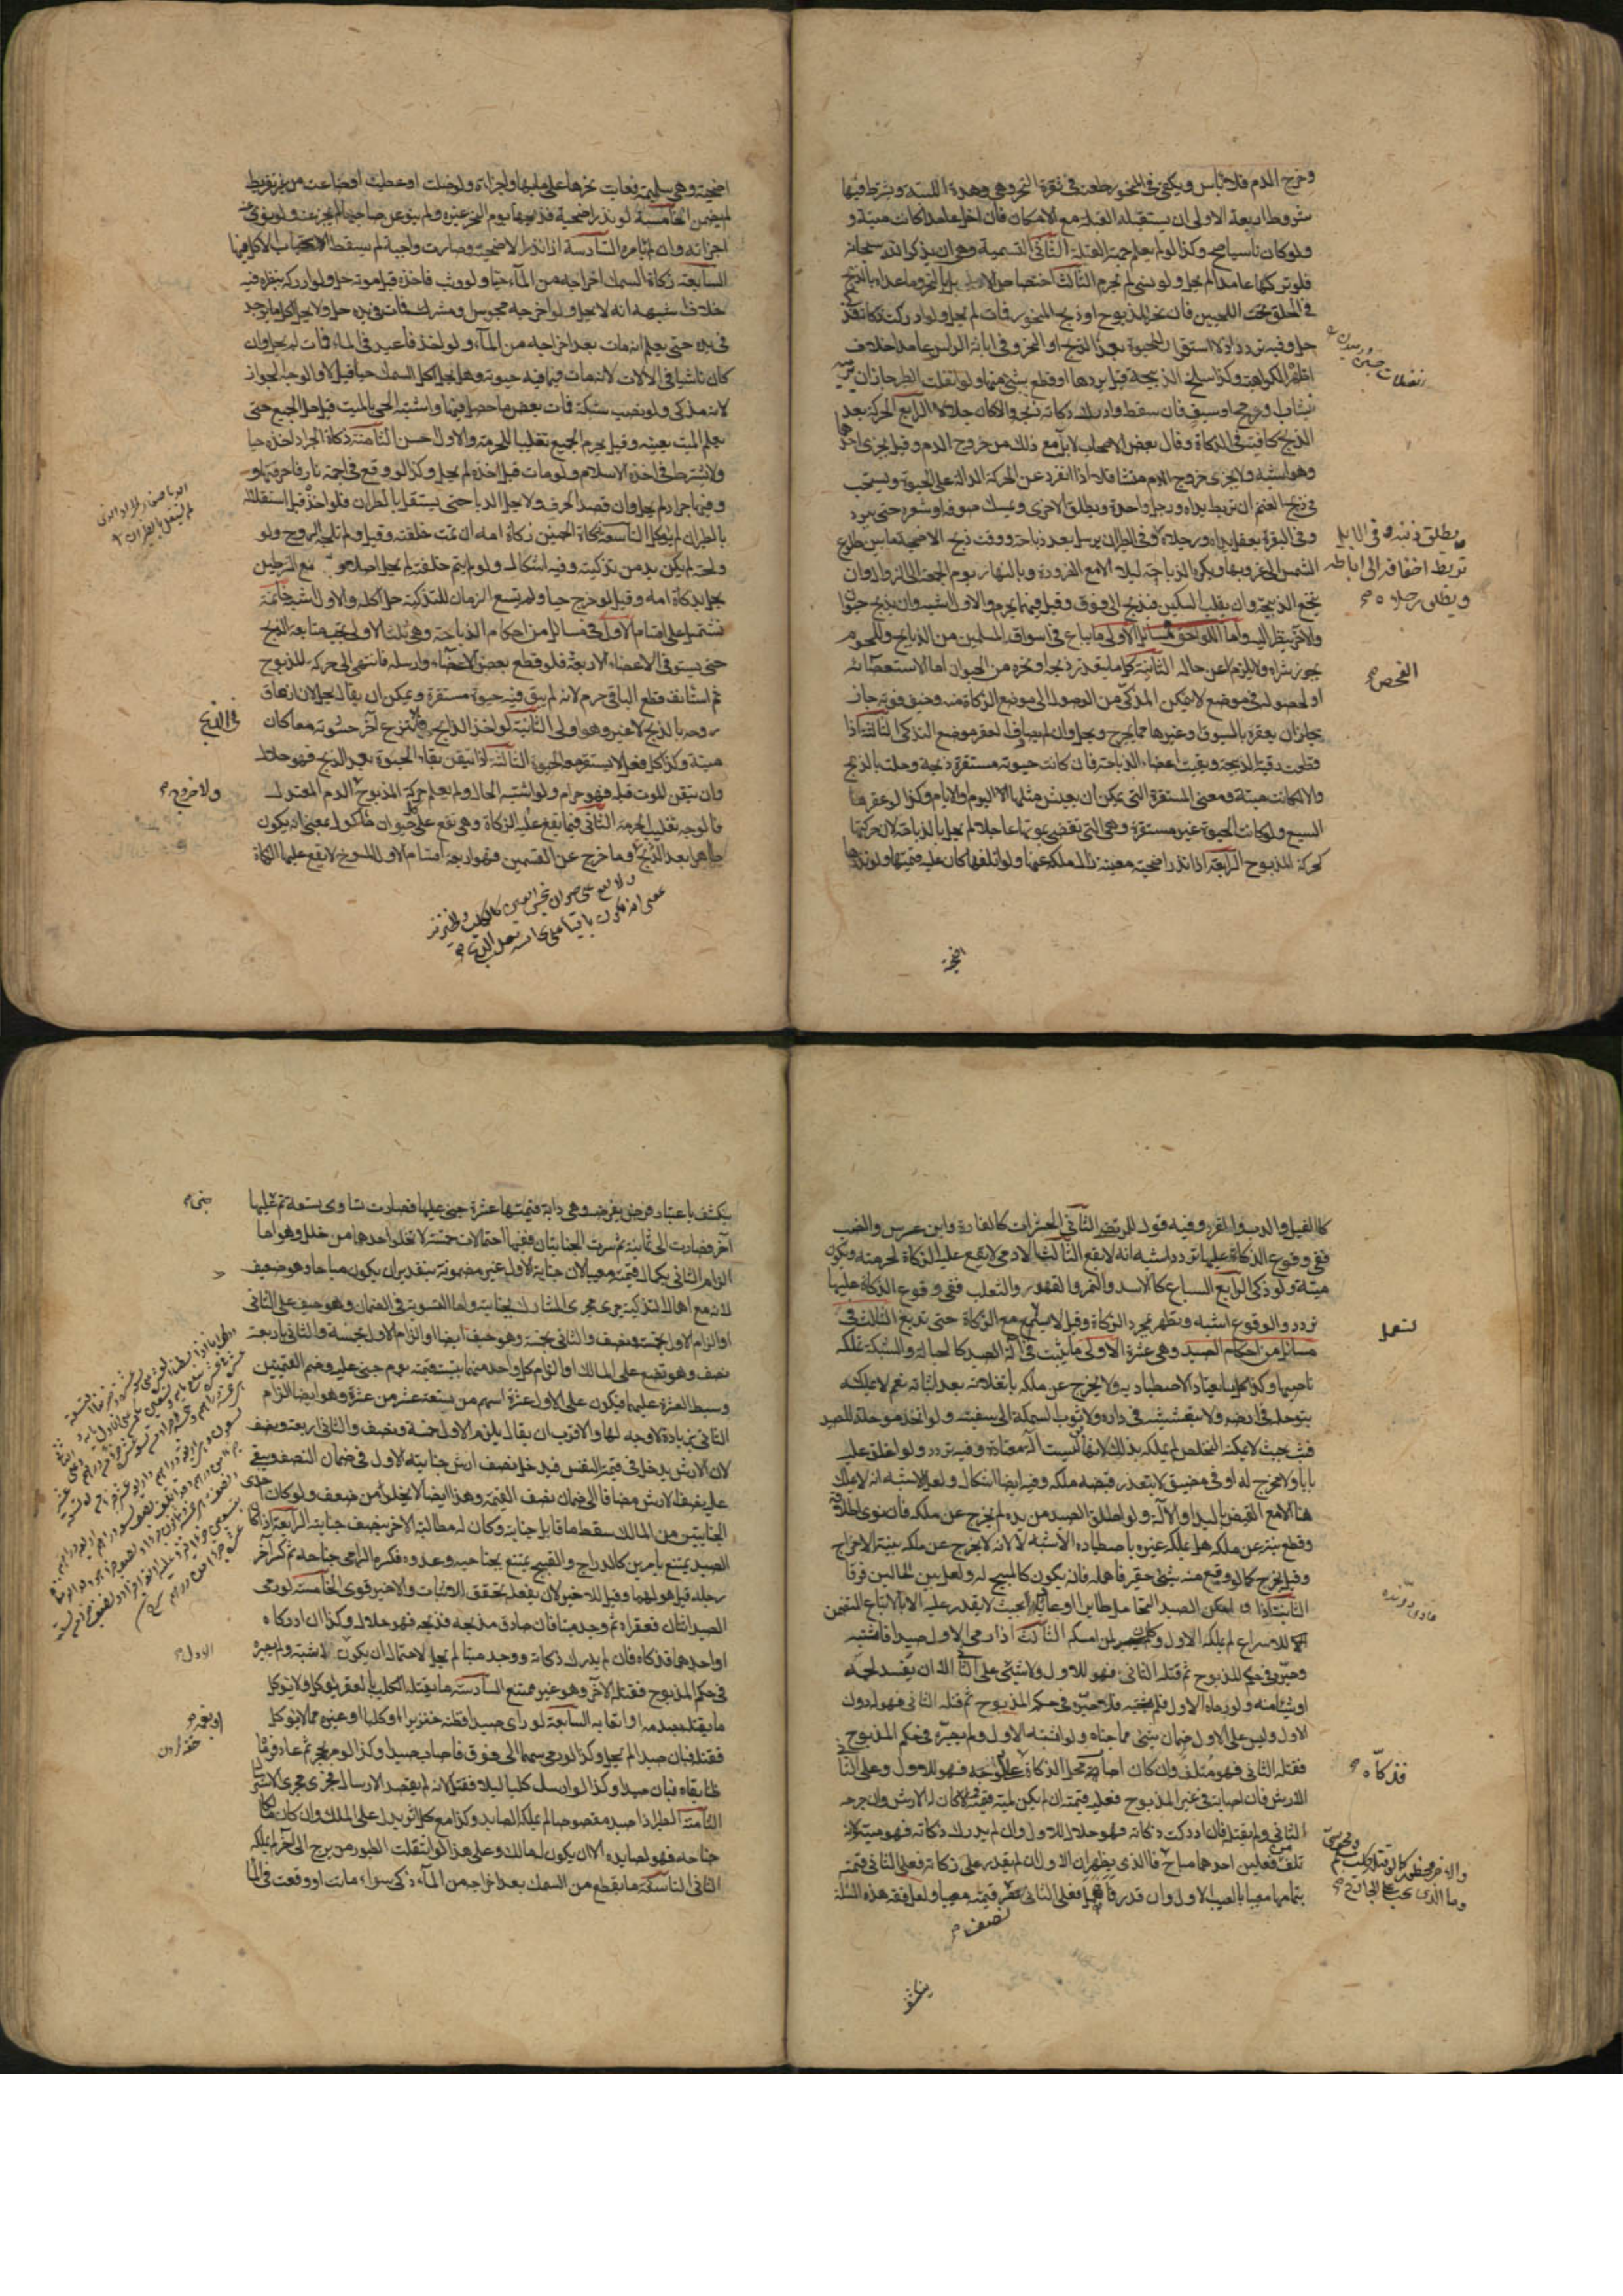 وخرج الدم فلا باس ويكفي في المنحور طعنه في ثغرة النحر وهي وهدة اللبة ويشترط فيها
شروط اربعة الاولى ان يستقبل القبلة مع الامكان فان اخل عامدا كانت ميتة و
ولو كان ناسيا صح وكذا لو لم يعلم جهة القبلة الثاني التسمية وهي ان يذكر الله سبحانه
فلو تركها عامدا لم يحل ولو نسي لم تحرم الثالث اختصاص الابل بالنحر وما عداها بالذبح
في الحلق تحت اللحيين فان نحر المذبوح او ذبح المنحور فمات لم يحل ولو ادركت ذكاته فذكي
حل وفيه تردد اذ لا استقرار للحيوة بعد الذبح او النحر وفي ابانة الراس عامدا خلاف
اظهره الكراهية وكذا سلخ الذبيحة قبل بردها او قطع شيء منها ولو انفلت الطير جاز ان يرميه
بنشاب او رمح او سيف فان سقط وادرك ذكاته ذبحه والا كان حلالا الرابع الحركة بعد
الذبح كافية في الذكاة وقال بعض الاصحاب لا بد مع ذلك من خروج الدم وقيل يجزي احدهما
وهو اشبه ولا يجزي خروج الدم متثاقلا اذا انفرد عن الحركة الدالة على الحيوة ويستحب
في ذبح الغنم ان تربط يداه ورجل واحدة ويطلق الاخرى ويمسك صوفه او شعره حتى يبرد
وفي البقرة يعقل يداه ورجلاه وفي الطير ان يرسل بعد ذباحة ووقت ذبح الاضحية ما بين طلوع
الشمس الى غروبها ويكره الذباحة ليلا الا مع الضرورة وبالنهار يوم الجمعة الى الزوال وان
ينخع الذبيحة وان يقلب السكين فيذبح الى فوق وقيل فيهما يحرم والاول اشبه وان يذبح حيوان
والاخر ينظر اليه واما اللواحق فمسائل الاولى ما يباع في اسواق المسلمين من الذبايح واللحوم
يجوز شراه ولا يلزم عن حاله الثانية كل ما يتعذر ذبحه او نحره من الحيوان اما لاستعصائه
او لحصوله في موضع لا يتمكن المذكي من الوصول الى موضع الذكاة منه وخيف فوته جاز
يجاز ان يعقره بالسيوف وغيرها مما يجرح ويحل وان لم يصادف العقر موضع التذكية الثالثة اذا
قطعت رقبة الذبيحة وبقيت اعضاء الذباحة فان كانت حيوته مستقرة ذبحه وحلت بالذبح
والا كانت ميتة ومعنى المستقرة التي يمكن ان يعيش مثلها اليوم والايام وكذا لو عقرها
السبع ولو كانت الحيوة غير مستقرة وهي التي تقضي بموتها عاجلا لم يحل بالذباحة لان حركتها
كحركة المذبوح الرابعة اذا نذر اضحية معينة زال ملكه عنها ولو اتلفها كان عليه قيمتها ولو نذرها
انفلات
يطلق ذنبه وفي الابل
تربط اخفافه الى اباطه
ويطلق رجلاه صح
الفحص صح
اضحية
اضحية وهي سليمة فعابت نحرها على ما بها واجزاه ولو ضلت او عطبت او ضاعت من غير تفريط
لم يضمن الخامسة لو نذر اضحية فذبحها يوم النحر غيره ولم ينو عن صاحبها لم يجز عنه ولو نوى عنه
اجزاته وان لم يامره السادسة اذا نذر الاضحية وصارت واجبة لم يسقط الاستحباب الاكل منها
السابعة ذكاة السمك اخراجه من الماء حيا ولو وثب فاخذه قبل موته حل ولو ادركه بنظره فيه
خلاف اشبهه انه لا يحل ولو اخرجه مجوسي ومشرك فمات في يده حل ولا يحل اكل ما يوجد
في يده حتى يعلم انه مات بعد اخراجه من الماء ولو اخذ فاعيد في الماء فمات لم يحل وان
كان ناشبا في الالات لانه مات فيما فيه حيوته وهل يحل اكل السمك حيا قيل لا والوجه الجواز
لانه مذكى ولو نصب شبكة فمات بعض ما حصل فيها واشتبه الحي بالميت قيل حل الجميع حتى
يعلم الميت بعينه وقيل يحرم الجميع تغليبا للحرمة والاول حسن الثامنة ذكاة الجراد اخذه حيا
ولا يشترط في اخذه الاسلام ولو مات قبل اخذه لم يحل وكذا لو وقع في اجمة نار فاحرقتها و
وفيها جراد لم يحل وان قصد الحرق ولا يحل الدبا حتى يستقل بالطيران فلو اخذ قبل استقلاله
بالطيران لم يؤكل التاسعة ذكاة الجنين ذكاة امه ان تمت خلقته وقيل ولم تلجه الروح ولو
ولجته لم يكن بد من تذكيته وفيه اشكال ولو لم يتم خلقته لم يحل اصلا ومع الشرطين
يحل بذكاة امه وقيل لو خرج حيا ولم يتسع الزمان للتذكية حل اكله والاول اشبه خاتمة
تشتمل على اقسام الاول في مسائل من احكام الذباحة وهي ثلث الاولى يجب متابعة الذبح
حتى يستوفي الاعضاء الاربعة فلو قطع بعض الاعضاء وارسله فانتهى الى حركة المذبوح
ثم استانف قطع الباقي حرم لانه لم يبق فيه حيوة مستقرة ويمكن ان يقال يحل لان ازهاق
روحه بالذبح لا غير وهو اولى الثانية لو اخذ الذابح وانتزع آخر حشوته معا كان
ميتة وكذا كل فعل لا يستقر معه الحيوة الثالثة اذا تيقن بقاء الحيوة بعد الذبح فهو حلال
وان تيقن الموت قبله فهو حرام ولو اشتبه الحال ولم يعلم حركة المذبوح الدم المعتدل
فالوجه تغليب الحرمة الثاني فيما يقع عليه الذكاة وهي تقع على كل حيوان ماكول بمعنى انه يكون
طاهرا بعد الذبح وما خرج عن القسمين فهو اربعة اقسام الاول المسوخ لا يقع عليها الذكاة
ولا تقع على حيوان نجس العين كالكلب والخنزير
بمعنى انه يكون باقيا على نجاسته بعد الذبح صح
لم يستقل بالطيران
في الذبح
ولا خروج صح
كالفيل والدب والقرد وفيه قول للمرتضى الثاني الحشرات كالفارة وابن عرس والضب
ففي وقوع الذكاة عليها تردد اشبهه انه لا يقع الثالث الادمي لا يقع عليه الذكاة لحرمته ويكون
ميتة ولو ذكي الرابع السباع كالاسد والنمر والفهد والثعلب ففي وقوع الذكاة عليها
تردد والوقوع اشبه ويطهر بمجرد الذكاة وقيل لا يستعمل مع الذكاة حتى تدبغ الثالث في
مسائل من احكام الصيد وهي عشرة الاولى ما يثبت في آلة الصيد كالحبالة والشبكة يملكه
ناصبها وكذا كل ما يعتاد الاصطياد به ولا يخرج عن ملكه بانفلاته بعد اثباته نعم لا يملكه
بتوحله في ارضه ولا بتعشيشه في داره ولا بوثوب السمكة الى سفينته ولو اتخذ موحلة للصيد
فنشب بحيث لا يمكنه التخلص لم يملكه بذلك لانها ليست آلة معتادة وفيه تردد ولو اغلق عليه
بابا ولا مخرج له او في مضيق لا يتعذر قبضه ملكه وفيه ايضا اشكال ولعل الاشبه انه لا يملك
هنا الا مع القبض باليد او الآلة ولو اطلق الصيد من يده لم يخرج عن ملكه فان نوى اطلاقه
وقطع نيته عن ملكه هل يملكه غيره باصطياده الاشبه لا لانه لا يخرج عن ملكه بنية الاخراج
وقيل يخرج كما لو وقع منه شيء حقير فاهمله فانه يكون كالمبيح له ولعل بين الحالين فرقا
الثانية اذا امكن الصيد التحامل طايرا او عاديا بحيث لا يقدر عليه الا بالاتباع المتضمن
للاسراع لم يملكه الاول وكان لمن امسكه الثالثة اذا رمى الاول صيدا فاثبته
وصيره في حكم المذبوح ثم قتله الثاني فهو للاول ولا شيء على الثاني الا ان يفسد لحمه
او شيئا منه ولو رماه الاول فلم يثبته ولا صيره في حكم المذبوح ثم قتله الثاني فهو له دون
الاول وليس على الاول ضمان شيء مما جناه ولو اثبته الاول ولم يصيره في حكم المذبوح
فقتله الثاني فهو متلف وان كان اصاب محل الذكاة على الوجه فهو للاول وعلى الثاني
الارش فان اصابه في غير المذبوح فعليه قيمته ان لم يكن لميته قيمة والا كان له الارش وان جرحه
الثاني ولم يقتل فان ادركت ذكاته فهو حلال للاول وان لم يدرك ذكاته فهو ميتة لانه
تلف من فعلين احدهما مباح فالذي يظهر ان الاول ان لم يقدر على ذكاته فعلى الثاني قيمته
بتمامها معيبا بالعيب الاول وان قدر فاهمل فعلى الثاني قيمته معيبا ولعل فقه هذه المسئلة
يستعمل
فذكاه صح
والاخر محظور كما لو قتله كلب مسلم ومجوسي
وما الذي يجب على الجارح صح
نصف صح
ينكشف
ينكشف باعتبار فرض نفرضه وهي دابة قيمتها عشرة جنى عليها فصارت تساوي تسعة ثم عليها
آخر فصارت الى ثمانية ثم سرت الجنايتان ففيها احتمالات خمسة لا تخلو احدها من خلل وهو اما
الزام الثاني كمال قيمته معيبا لان جناية الاول غير مضمونة بتقدير ان يكون مباحا وهو ضعيف
لانه مع اهمال التذكية جرى مجرى المشارك بجنايته واما التسوية في الضمان وهو حيف على الثاني
او الزام الاول بخمسة ونصف والثاني بخمسة وهو حيف ايضا او الزام الاول بخمسة والثاني باربعة
نصف وهو تضييع على المالك او الزام كل واحد منهما بنسبة قيمته يوم جنى عليه وضم القيمتين
وبسط العشرة عليهما فيكون على الاول عشرة اسهم من تسعة عشر من عشرة وهو ايضا الزام
الثاني بزيادة لا وجه لها والاقرب ان يقال يلزم الاول خمسة ونصف والثاني اربعة ونصف
لان الارش يدخل في قيمة النفس فيدخل نصف ارش جنايته الاول في ضمان النصف ويبقى
عليه نصف الارش مضافا الى ضمان نصف القيمة وهذا ايضا لا يخلو من ضعف ولو كان احدى
الجنايتين من المالك سقط ما قابل جنايته وكان له مطالبة الاخر بنصف جنايته الرابعة اذا كان
الصيد يمتنع بامرين كالدراج والقبج يمتنع بجناحيه وعدوه فكسر الرامي جناحه ثم كسر آخر
رجله قيل هو لهما وقيل للاخير لان بفعله تحقق الاثبات والاخير قوي الخامسة لو رمى
الصيد اثنان فعقراه ثم وجد ميتا فان صادف مذبحه فذبحه فهو حلال وكذا ان ادركاه
او احدهما فذكاه فان لم يدرك ذكاته ووجد ميتا لم يحل لاحتمال ان يكون لاثبته ولم يصيره
في حكم المذبوح فقتله الآخر وهو غير ممتنع السادسة ما يقتله الكلب بالعقر يؤكل ولا يؤكل
ما يقتله بصدمه او اتعابه السابعة لو راى صيدا فظنه خنزيرا او كلبا او غيره مما لا يؤكل
فقتله فبان صيدا لم يحل وكذا لو رمى سهما الى فوق فاصاب صيدا وكذا لو مر بحجر ثم عاد فرماه
ظانا بقاه فبان صيدا وكذا لو ارسل كلبا ليلا فقتل لانه لم يقصد الارسال فجرى مجرى الاسترسال
الثامنة الطير اذا صيد مقصوصا لم يملكه الصايد وكذا مع كل اثر يدل على الملك وان كان مالكا
جناحه فهو لصايده الا ان يكون له مالك وعلى هذا لو انتقلت الطيور من برج الى آخر لم يملكه
الثاني التاسعة ما يقطع من السمك بعد اخراجه من الماء ذكي سواء ماتت او وقعت في الماء
جنى صح
الاول صح